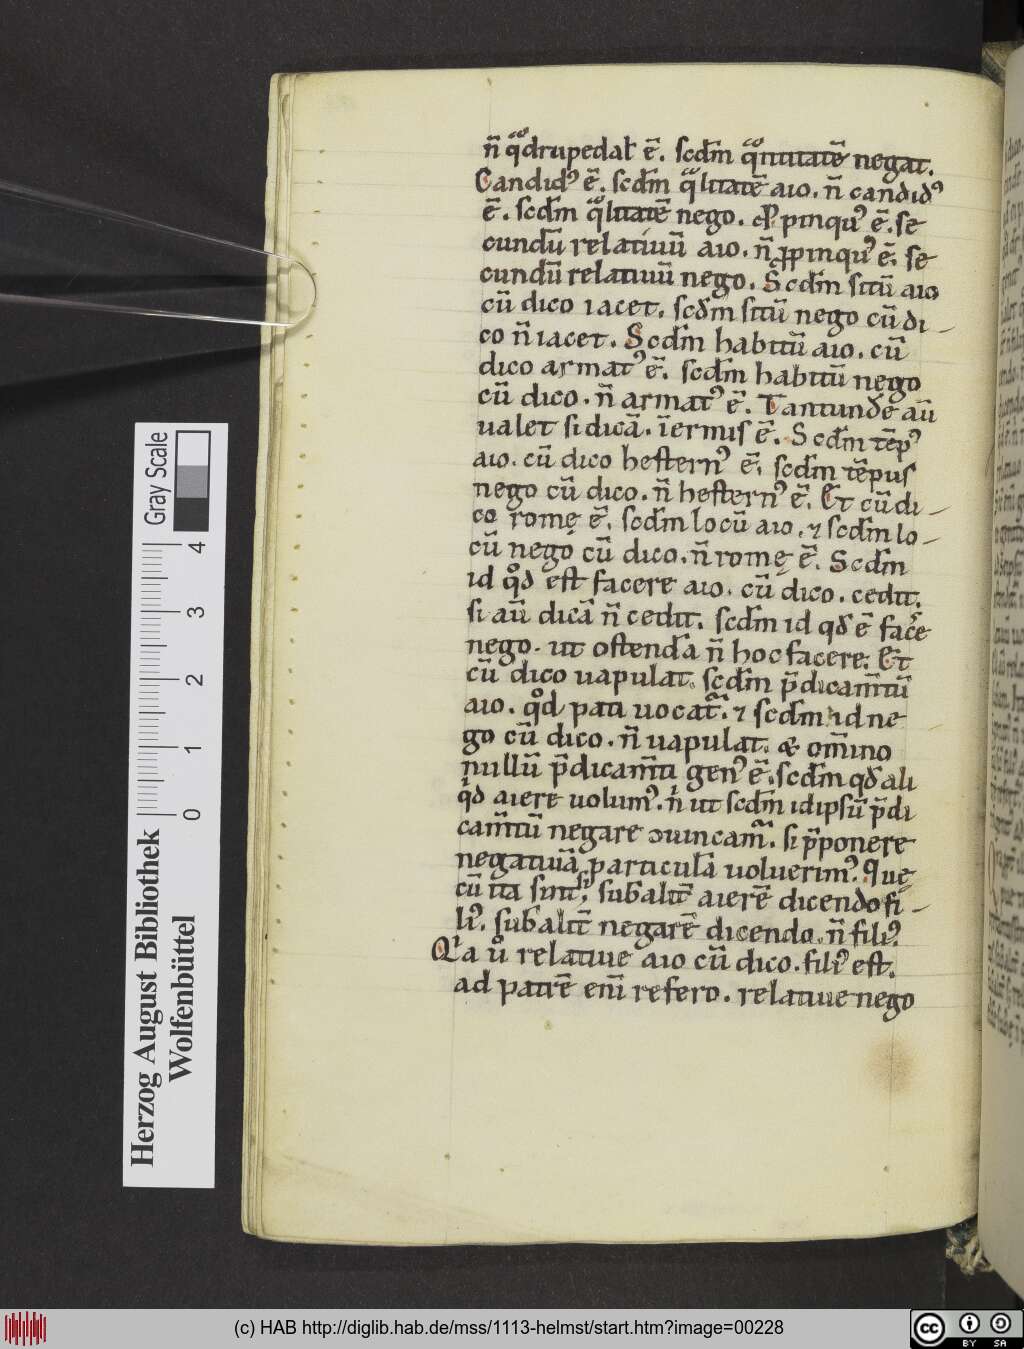 n̄ qͣdrupedal ē. scd̄m qͣntitatē negat.
Candidꝰ ē. scd̄m qͣlitatē aio. n̄ candidꝰ
ē. scd̄m qͣlitatē nego. pinquꝰ ē. se
cundū relatiuū aio. n̄ ꝓpinquꝰ ē. se
cundū relatiuū nego. Scd̄m sitū aio
cū dico iacet. scd̄m sitū nego cū di-
co n̄ iacet. Scd̄m habitū aio. cū
dico armatꝰ ē. scd̄m habitū nego
cū dico. n̄ armatꝰ ē. Tantundē aū
ualet si dicā. īermis ē. Scd̄m tēpꝰ
aio. cū dico hesternꝰ ē. scd̄m tēpus
nego cū dico. n̄ hesternꝰ ē. Et cū di-
co romę ē. scd̄m locū aio. ⁊ scd̄m lo-
cū nego cū dico. n̄ romę ē. Scd̄m
id qͦd est facere aio. cū dico. cedit.
si aū dicā n̄ cedit. scd̄m id qđ ē fac̄e
nego. ut ostendā n̄ hoc facere. Et
cū dico uapulat. scd̄m p̄dicam̄tū
aio. qͦd pati uocat᷑. ⁊ scd̄m id ne
go cū dico. n̄ uapulat. & om̄ino
nullū p̄dicam̄ti genꝰ ē. scd̄m qđ ali
qͥd aiere uolumꝰ. n̄ ut scd̄m idipsū p̄di
cam̄tū negare ↄuincam᷑. si p̄ponere
negatiuā particulā uoluerimꝰ. Quę
cū ita sint, subalit̄ aierē dicendo fi-
liꝰ. subalit̄ negarē dicendo. n̄ filiꝰ.
Qͥa u̓o relatiue aio cū dico. filiꝰ est.
ad patrē eni̅ refero. relatiue nego
Herzog August Bibliothek
Wolfenbüttel
0 1 2 3 4
Gray Scale
(c) HAB http://diglib.hab.de/mss/1113-helmst/start.htm?image=00228
cc
BY SA